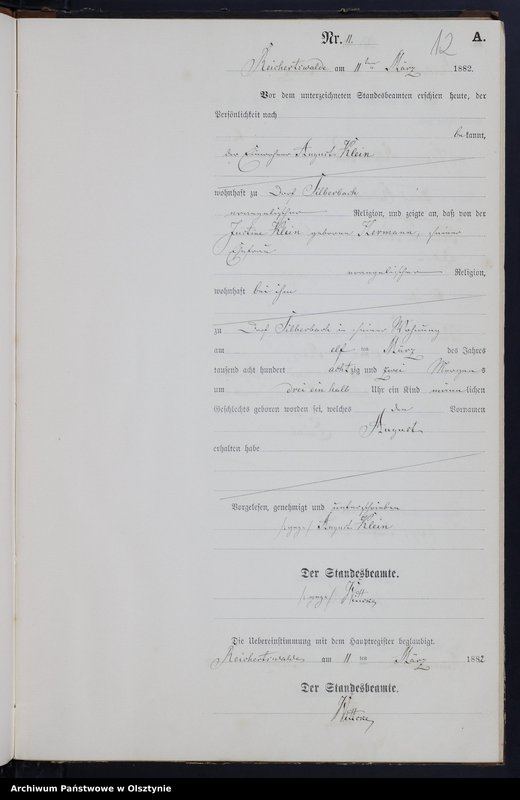 Nr. 11. 12 A.
Reichertswalde am 11ten März 1882.
Vor dem unterzeichneten Standesbeamten erschien heute, der
Persönlichkeit nach
bekannt,
der Einwohner August Klein
wohnhaft zu Dorf Silberbach
evangelischer Religion, und zeigte an, daß von der
Justine Klein geborene Hermann, seiner
Ehefrau
evangelischer Religion,
wohnhaft bei ihm
zu Dorf Silberbach in seiner Wohnung
am elf ten März des Jahres
tausend acht hundert achtzig und zwei Morgens
um drei ein halb Uhr ein Kind männlichen
Geschlechts geboren worden sei, welches den Vornamen
August
erhalten habe
Vorgelesen, genehmigt und unterschrieben
/:gez:/ August Klein
Der Standesbeamte.
/:gez:/
Die Uebereinstimmung mit dem Hauptregister beglaubigt.
Reichertswalde am 11 ten März 1882
Der Standesbeamte.
Archiwum Państwowe w Olsztynie